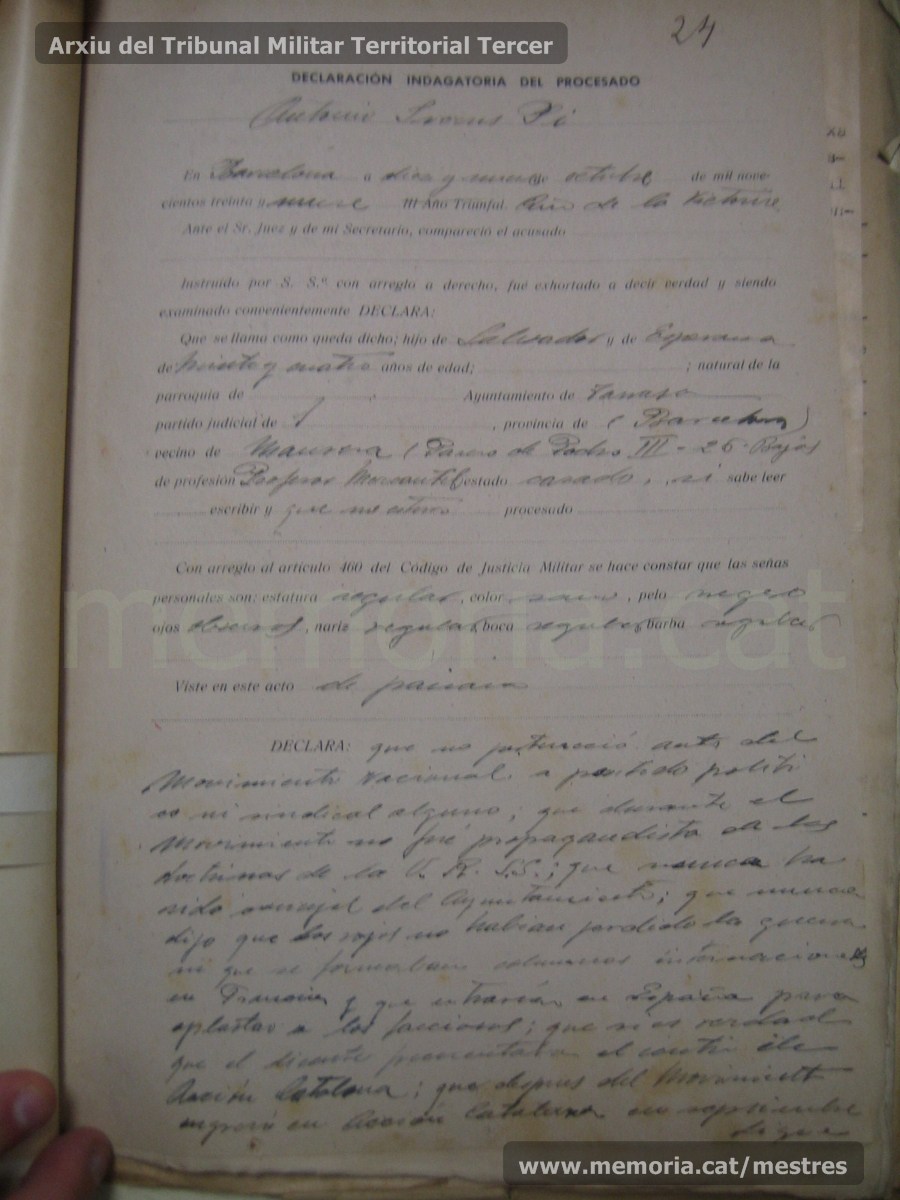 Arxiu del Tribunal Militar Territorial Tercer
24
DECLARACIÓN INDAGATORIA DEL PROCESADO
Antonio Pi
En Barcelona a diez y nueve de octubre de mil nove-
cientos treinta y nueve III Año Triunfal. Año de la Victoria
Ante el Sr. Juez y de mi Secretario, compareció el acusado
Instruido por S. S.ª con arreglo a derecho, fue exhortado a decir verdad y siendo
examinado convenientemente DECLARA:
Que se llama como queda dicho; hijo de Salvador y de Esperanza
de treinta y cuatro años de edad; ; natural de la
parroquia de Ayuntamiento de Tarrasa
partido judicial de , provincia de (Barcelona)
vecino de Manresa (Paseo de Pedro III - 26 - Bajos
de profesión Profesor Mercantil estado casado, si sabe leer
escribir y que procesado
Con arreglo al artículo 460 del Código de Justicia Militar se hace constar que las señas
personales son: estatura regular, color sano, pelo negro
ojos obscuros, nariz regular, boca regular, barba regular
Viste en este acto de paisano
DECLARA: que no perteneció antes del
Movimiento Nacional a partido políti
co ni sindical alguno; que durante el
Movimiento no fué propagandista de las
doctrinas de la U.R.S.S.; que nunca ha
sido concejal del Ayuntamiento; que nunca
dijo que los rojos no habian perdido la guerra
ni que se formaban columnas internacionales
en Francia y que entrarían en España para
aplastar a los facciosos; que si es verdad
que el dicente frecuentaba el centro de
Acción Catalana; que despues del Movimiento
ingresó en Acción Catalana en septiembre
sigue
memoria.cat
www.memoria.cat/mestres